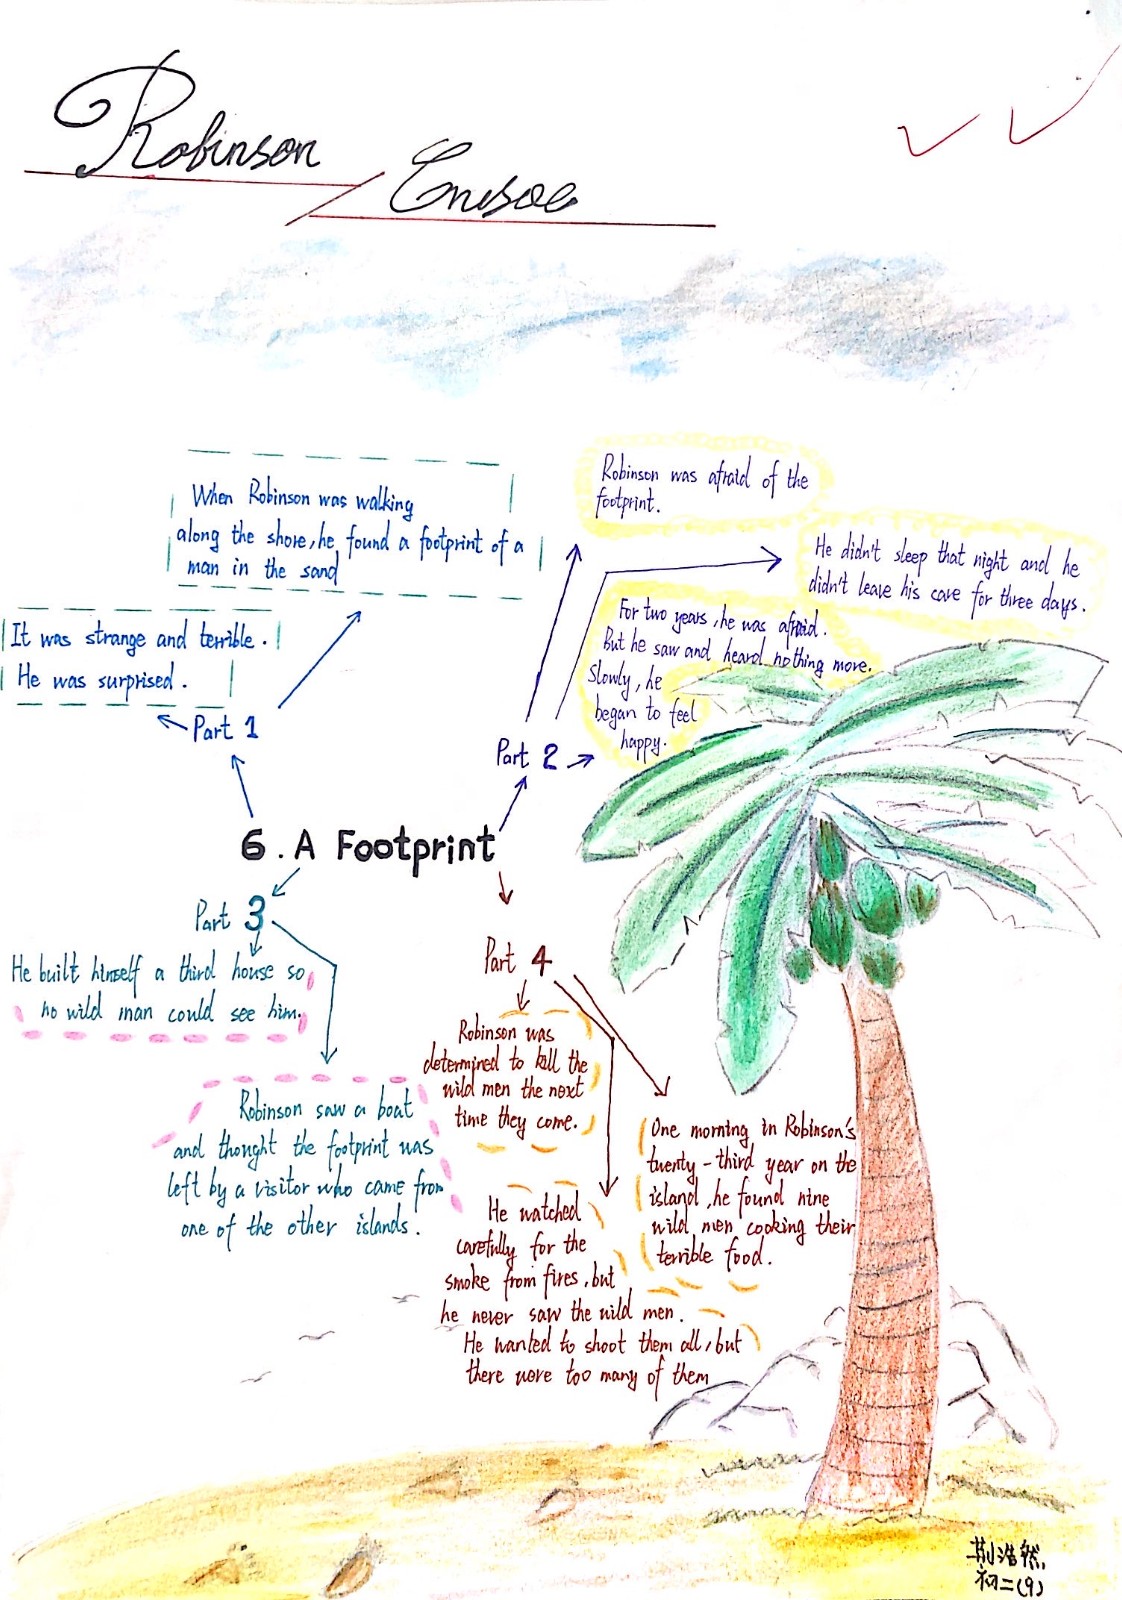 Robinson
Crusoe
When Robinson was walking
along the shore, he found a footprint of a
man in the sand
It was strange and terrible.
He was surprised.
Part 1
Robinson was afraid of the
footprint.
He didn't sleep that night and he
didn't leave his cave for three days.
For two years, he was afraid.
But he saw and heard nothing more.
Slowly, he
began to feel
happy.
Part 2
6. A Footprint
Part 3
He built himself a third house so
no wild man could see him.
Robinson saw a boat
and thought the footprint was
left by a visitor who came from
one of the other islands.
Part 4
Robinson was
determined to kill the
wild men the next
time they come.
He watched
carefully for the
smoke from fires, but
he never saw the wild men.
He wanted to shoot them all, but
there were too many of them
One morning in Robinson's
twenty-third year on the
island, he found nine
wild men cooking their
terrible food.
荆浩然
初二(9)